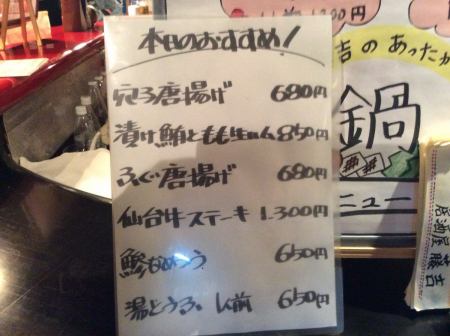 本日のおすすめ！
唐揚げ 680円
漬け鮪ともも生ハム 850円
ふぐ唐揚げ 680円
仙台牛ステーキ 1.300円
鯵なめろう 650円
湯どうふ、1人前 650円
吉のあったか
鍋
ニュー
居酒屋 藤吉